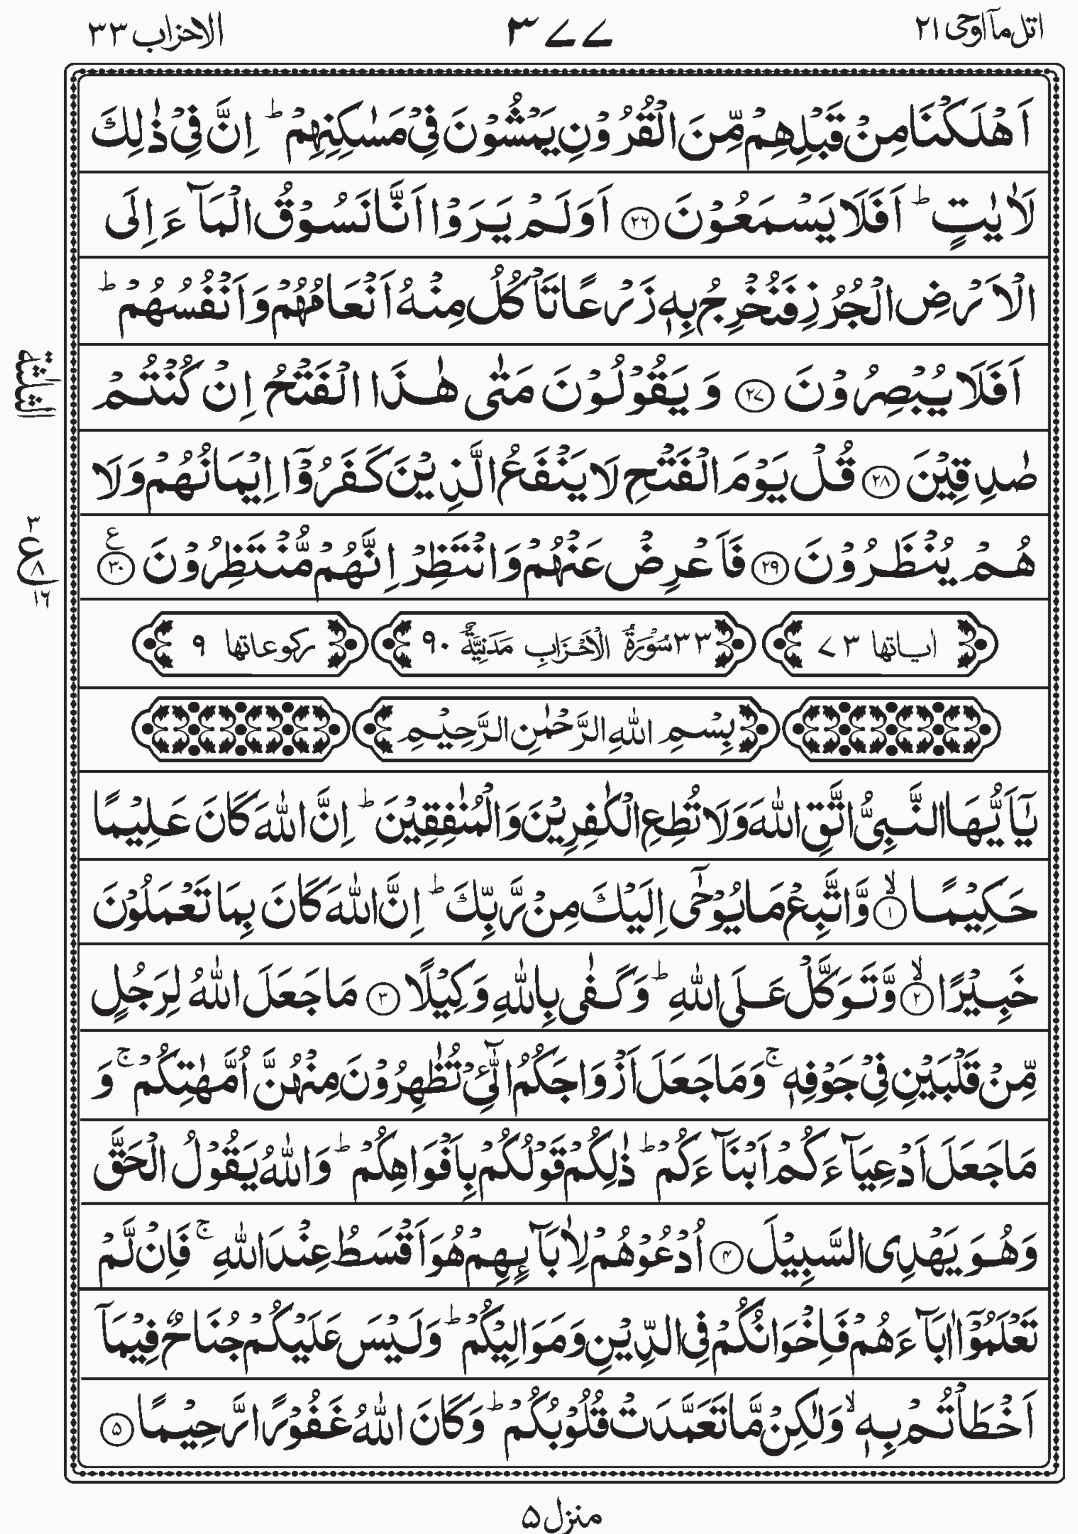 اتل ماۤ اوحی ۲۱
۳۷۷
الاحزاب ۳۳
اَهْلَكْنَا مِنْ قَبْلِهِمْ مِّنَ الْقُرُوْنِ يَمْشُوْنَ فِيْ مَسٰكِنِهِمْ ؕ اِنَّ فِيْ ذٰلِكَ
لَاٰيٰتٍ ؕ اَفَلَا يَسْمَعُوْنَ ﴿۲۶﴾ اَوَلَمْ يَرَوْا اَنَّا نَسُوْقُ الْمَآءَ اِلَى
الْاَرْضِ الْجُرُزِ فَنُخْرِجُ بِهٖ زَرْعًا تَاْكُلُ مِنْهُ اَنْعَامُهُمْ وَاَنْفُسُهُمْ ؕ
اَفَلَا يُبْصِرُوْنَ ﴿۲۷﴾ وَيَقُوْلُوْنَ مَتٰى هٰذَا الْفَتْحُ اِنْ كُنْتُمْ
الثلٰثة
صٰدِقِيْنَ ﴿۲۸﴾ قُلْ يَوْمَ الْفَتْحِ لَا يَنْفَعُ الَّذِيْنَ كَفَرُوْۤا اِيْمَانُهُمْ وَلَا
هُمْ يُنْظَرُوْنَ ﴿۲۹﴾ فَاَعْرِضْ عَنْهُمْ وَانْتَظِرْ اِنَّهُمْ مُّنْتَظِرُوْنَ ﴿۳۰﴾ ع
۳
ع ۸
۱۶
اٰیاتها ۷۳
۳۳ سُوْرَةُ الْاَحْزَابِ مَدَنِيَّةٌ ۹۰
رکوعاتها ۹
بِسْمِ اللّٰهِ الرَّحْمٰنِ الرَّحِيْمِ
يٰۤاَيُّهَا النَّبِيُّ اتَّقِ اللّٰهَ وَلَا تُطِعِ الْكٰفِرِيْنَ وَالْمُنٰفِقِيْنَ ؕ اِنَّ اللّٰهَ كَانَ عَلِيْمًا
حَكِيْمًا ۙ﴿۱﴾ وَّاتَّبِعْ مَا يُوْحٰۤى اِلَيْكَ مِنْ رَّبِّكَ ؕ اِنَّ اللّٰهَ كَانَ بِمَا تَعْمَلُوْنَ
خَبِيْرًا ۙ﴿۲﴾ وَّتَوَكَّلْ عَلَى اللّٰهِ ؕ وَكَفٰى بِاللّٰهِ وَكِيْلًا ﴿۳﴾ مَا جَعَلَ اللّٰهُ لِرَجُلٍ
مِّنْ قَلْبَيْنِ فِيْ جَوْفِهٖ ۚ وَمَا جَعَلَ اَزْوَاجَكُمُ الّٰٓـِٔيْ تُظٰهِرُوْنَ مِنْهُنَّ اُمَّهٰتِكُمْ ۚ وَ
مَا جَعَلَ اَدْعِيَآءَكُمْ اَبْنَآءَكُمْ ؕ ذٰلِكُمْ قَوْلُكُمْ بِاَفْوَاهِكُمْ ؕ وَاللّٰهُ يَقُوْلُ الْحَقَّ
وَهُوَ يَهْدِى السَّبِيْلَ ﴿۴﴾ اُدْعُوْهُمْ لِاٰبَآئِهِمْ هُوَ اَقْسَطُ عِنْدَ اللّٰهِ ۚ فَاِنْ لَّمْ
تَعْلَمُوْۤا اٰبَآءَهُمْ فَاِخْوَانُكُمْ فِى الدِّيْنِ وَمَوَالِيْكُمْ ؕ وَلَيْسَ عَلَيْكُمْ جُنَاحٌ فِيْمَاۤ
اَخْطَاْتُمْ بِهٖ ۙ وَلٰكِنْ مَّا تَعَمَّدَتْ قُلُوْبُكُمْ ؕ وَكَانَ اللّٰهُ غَفُوْرًا رَّحِيْمًا ﴿۵﴾
منزل ۵